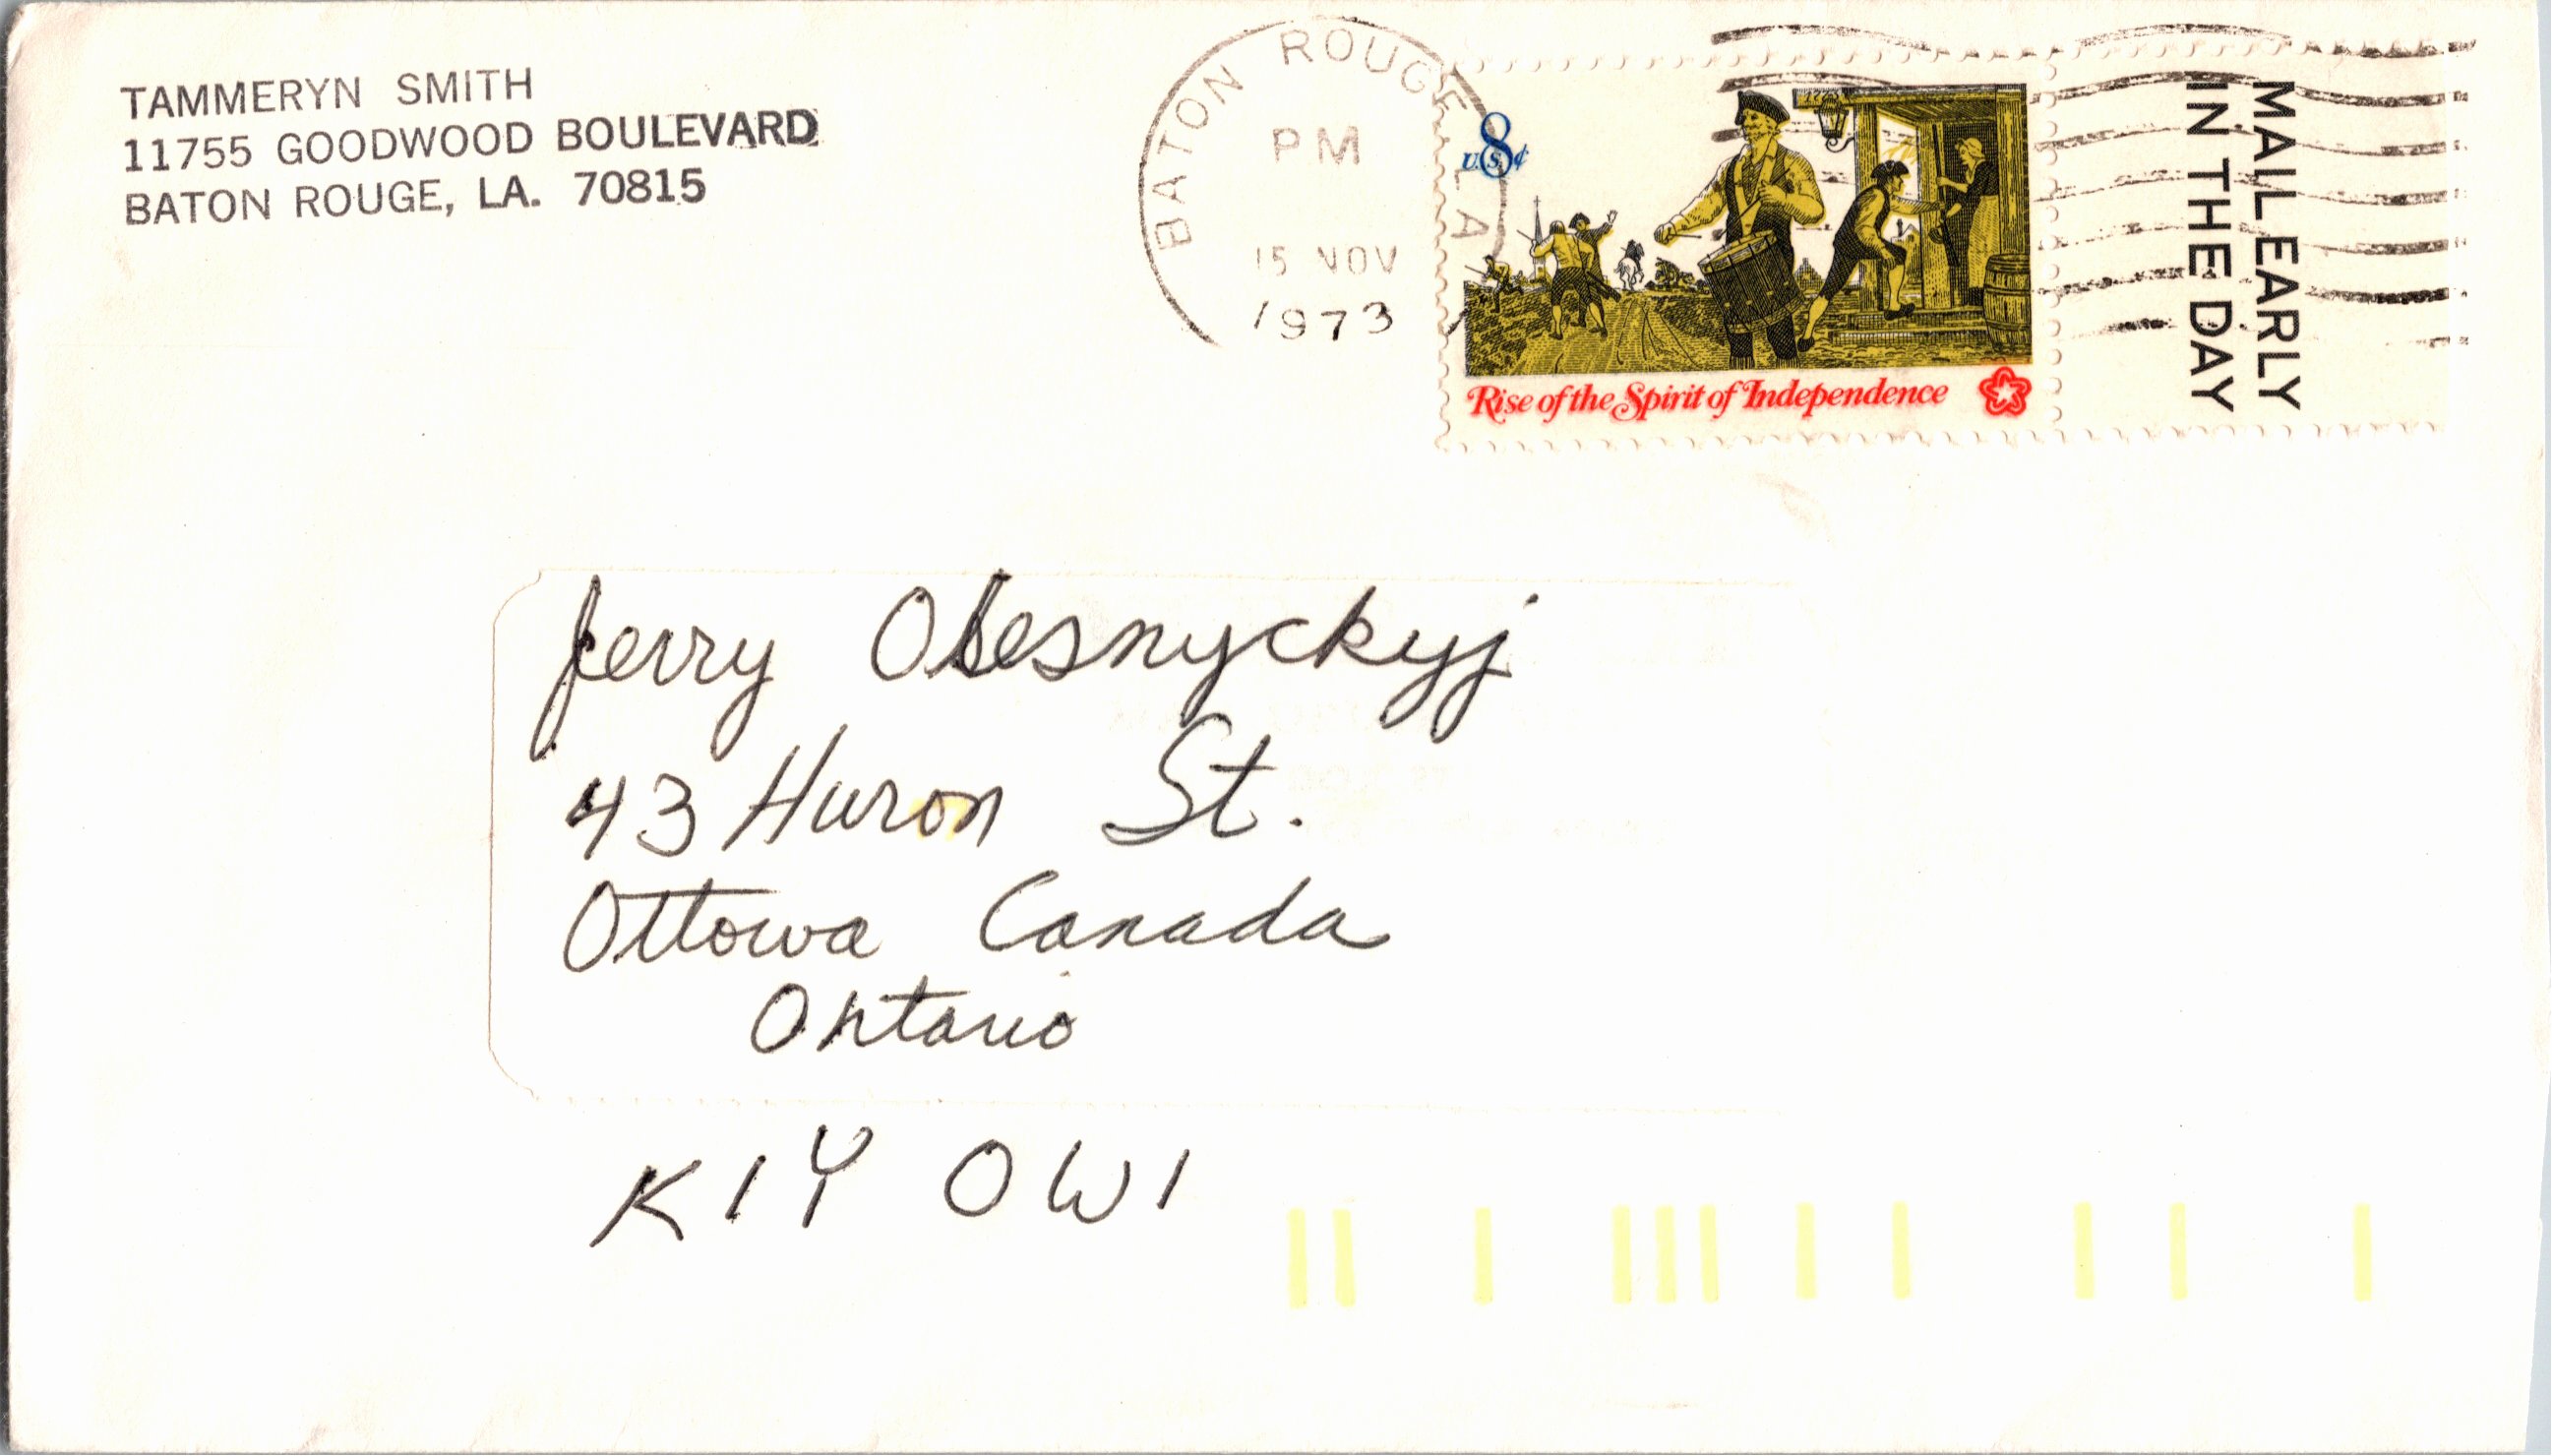 TAMMERYN SMITH
11755 GOODWOOD BOULEVARD
BATON ROUGE, LA. 70815
BATON ROUGE, LA
PM
15 NOV
1973
8
U.S. ¢
Rise of the Spirit of Independence
MAIL EARLY
IN THE DAY
Jerry Olesnyckyj
43 Huron St.
Ottowa Canada
Ontario
K1Y OW1